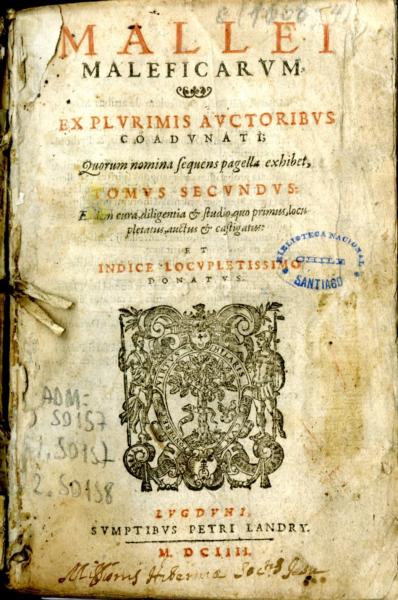 MALLEI
MALEFICARVM
EX PLVRIMIS AVCTORIBVS
COADVNATI;
Quorum nomina sequens pagella exhibet,
TOMVS SECVNDVS:
Eadem cura, diligentia & studio, quo primus, locu-
pletatus, auctus & castigatus:
ET
INDICE LOCVPLETISSIMO
DONATVS.
BIBLIOTECA NACIONAL
CHILE
SANTIAGO
ADM=
50157
1.50157
2.50158
LVGDVNI,
SVMPTIBVS PETRI LANDRY.
M. DCIIII.